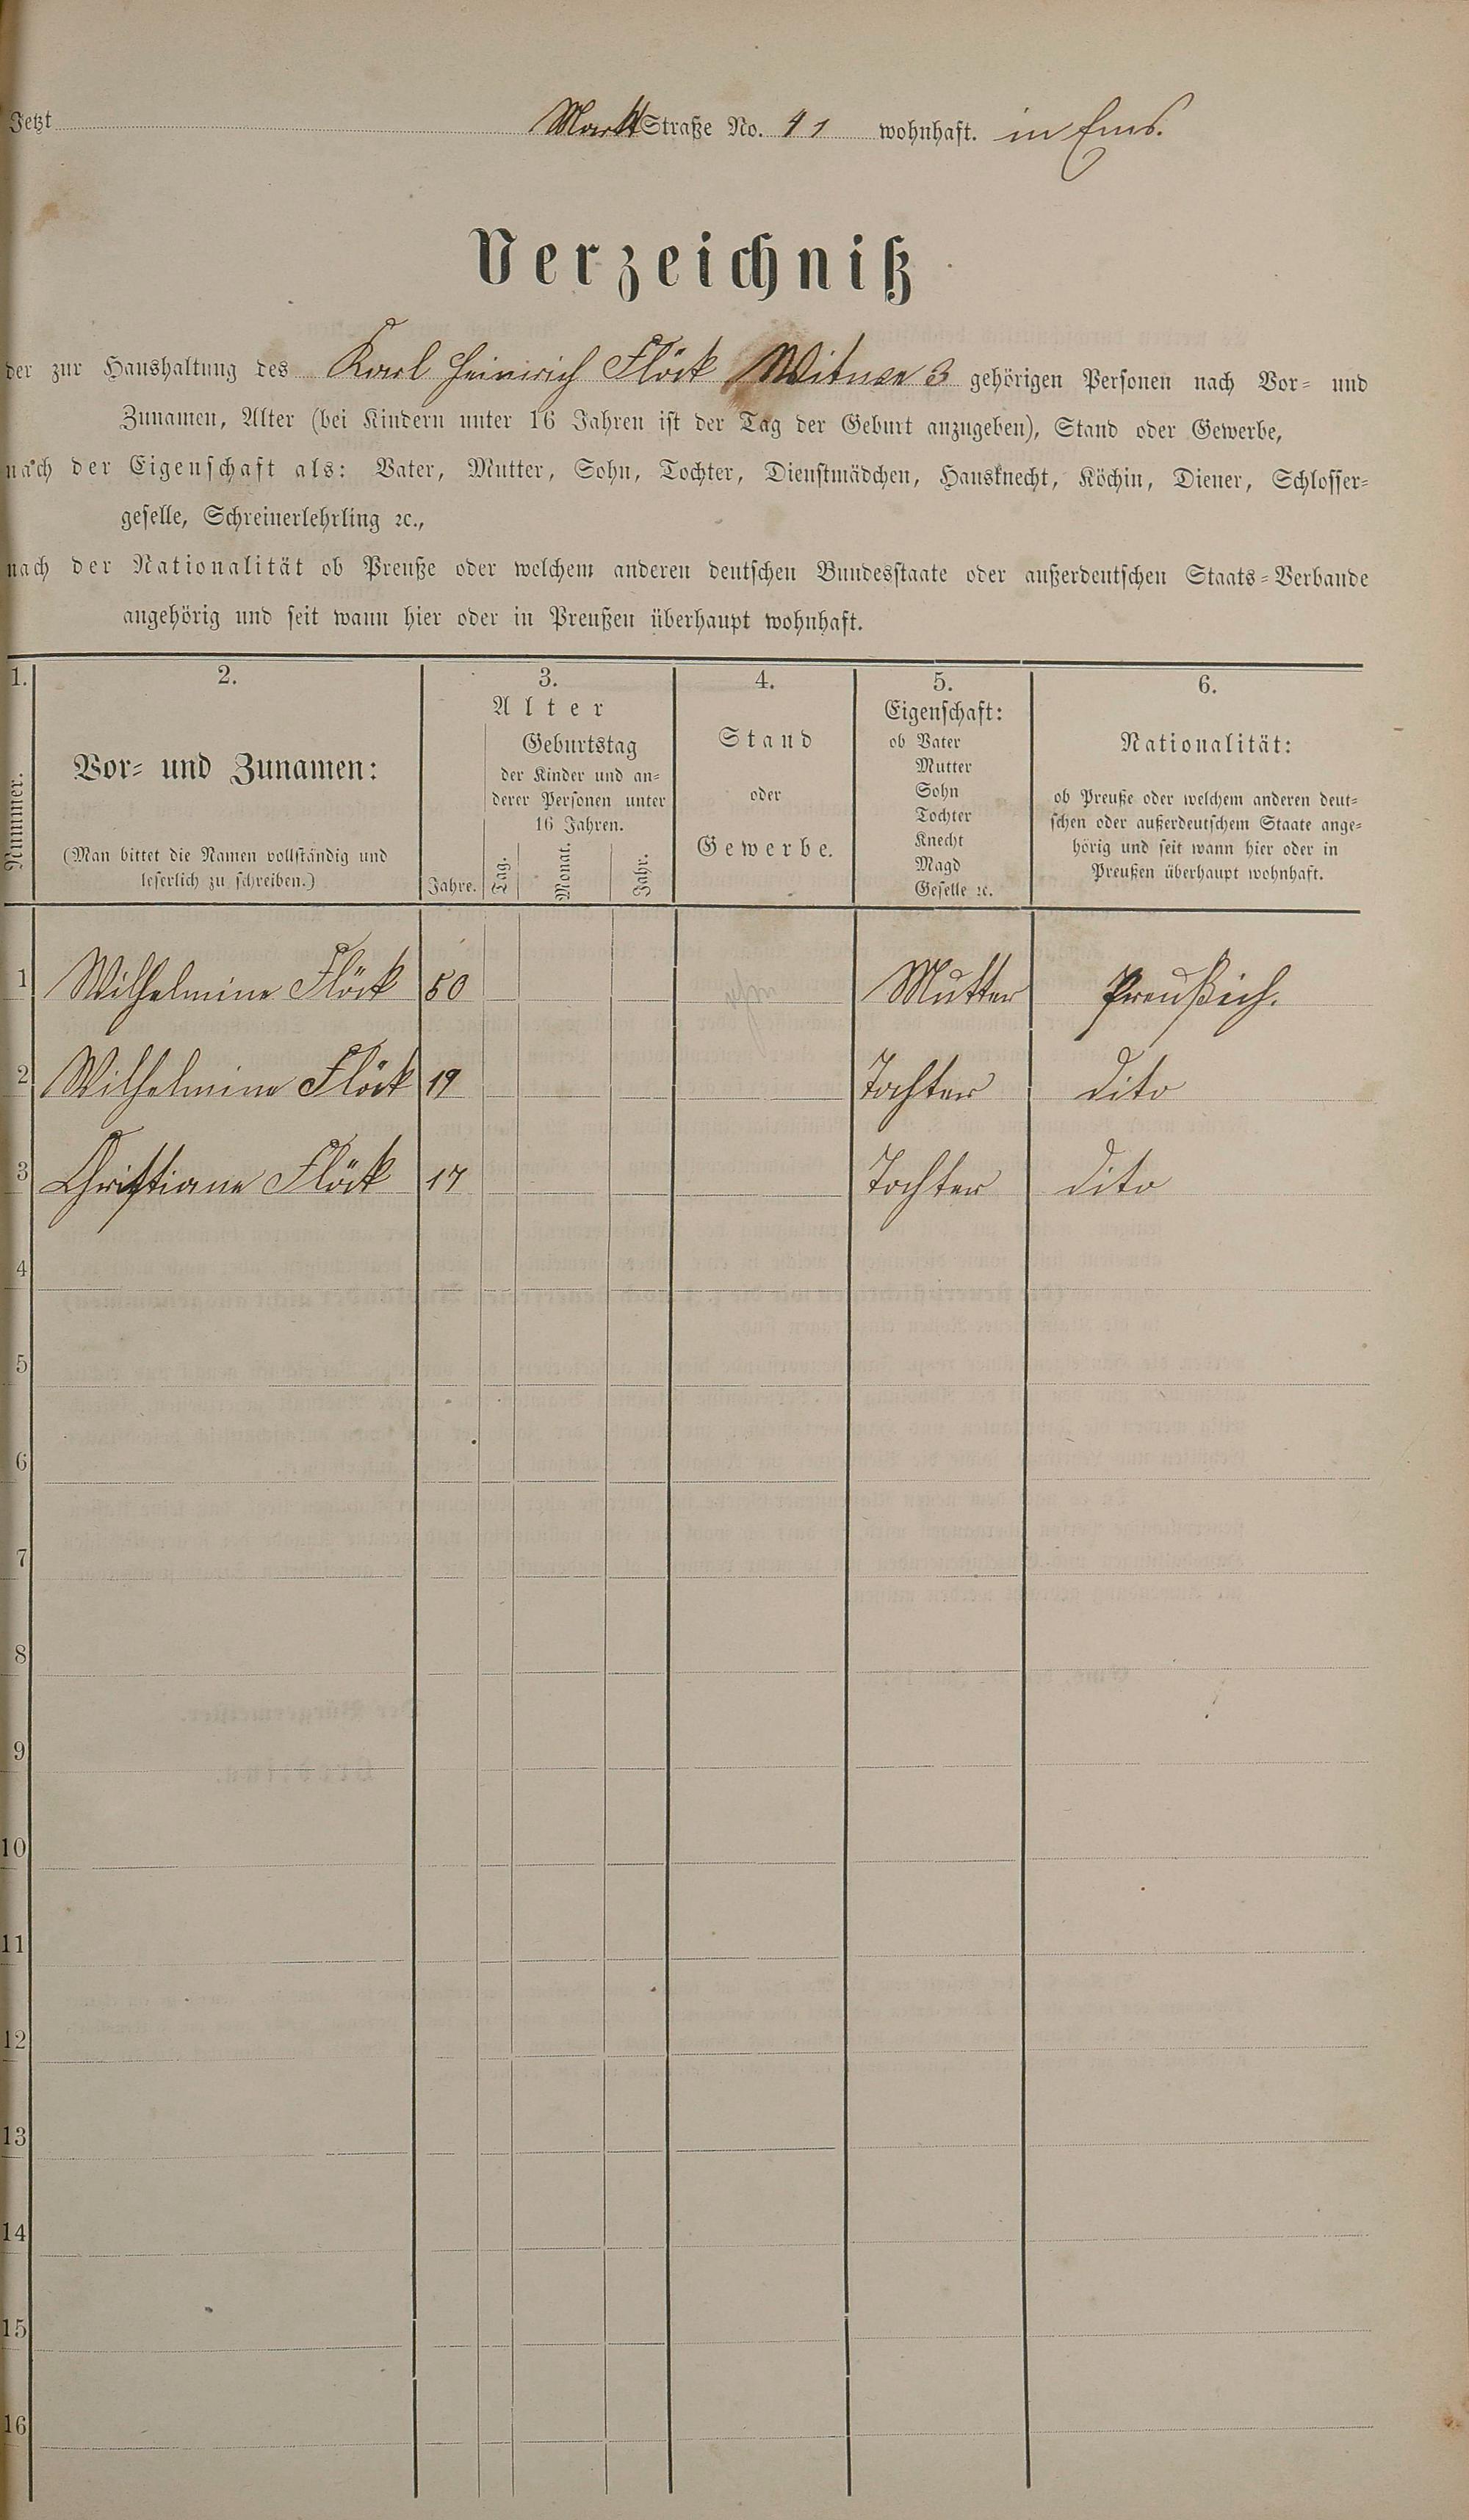 Jetzt Markt Straße No. 41 wohnhaft. in Ems.
Verzeichniß
der zur Haushaltung des Karl Heinrich Flöck Witwe 3 gehörigen Personen nach Vor- und
Zunamen, Alter (bei Kindern unter 16 Jahren ist der Tag der Geburt anzugeben), Stand oder Gewerbe,
nach der Eigenschaft als: Vater, Mutter, Sohn, Tochter, Dienstmädchen, Hausknecht, Köchin, Diener, Schlosser-
geselle, Schreinerlehrling ꝛc.,
nach der Nationalität ob Preuße oder welchem anderen deutschen Bundesstaate oder außerdeutschen Staats-Verbande
angehörig und seit wann hier oder in Preußen überhaupt wohnhaft.
1.
Nummer.
2.
Vor- und Zunamen:
(Man bittet die Namen vollständig und
leserlich zu schreiben.)
3.
Alter
Jahre.
Geburtstag
der Kinder und an-
derer Personen unter
16 Jahren.
Tag.
Monat.
Jahr.
4.
Stand
oder
Gewerbe.
5.
Eigenschaft:
ob Vater
Mutter
Sohn
Tochter
Knecht
Magd
Geselle ꝛc.
6.
Nationalität:
ob Preuße oder welchem anderen deut-
schen oder außerdeutschem Staate ange-
hörig und seit wann hier oder in
Preußen überhaupt wohnhaft.
1 Wilhelmine Flöck 50 Mutter Preußich.
2 Wilhelmine Flöck 19 Tochter dito
3 Christiane Flöck 17 Tochter dito
4
5
6
7
8
9
10
11
12
13
14
15
16